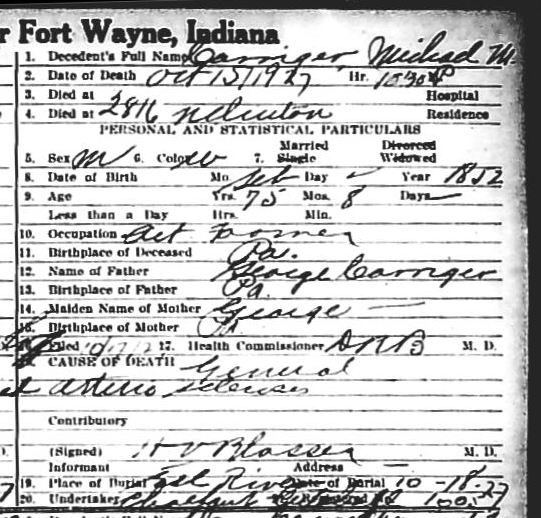 r Fort Wayne, Indiana
1. Decedent's Full Name Carriger, Michael M.
2. Date of Death Oct 15/1927 Hr. 10:30 P
3. Died at Hospital
4. Died at 2816 N Clinton Residence
PERSONAL AND STATISTICAL PARTICULARS
5. Sex M 6. Color W 7. Married Single Divorced Widowed
8. Date of Birth Mo. Feb Day - Year 1852
9. Age Yrs. 75 Mos. 8 Days -
Less than a Day Hrs. Min.
10. Occupation Ret Farmer
11. Birthplace of Deceased Pa.
12. Name of Father George Carriger
13. Birthplace of Father Pa
14. Maiden Name of Mother George —
15. Birthplace of Mother Pa
Filed 10/17/2 17. Health Commissioner M. D.
CAUSE OF DEATH General
arterio sclerosis
Contributory
(Signed) H V Blosser M. D.
Informant Address —
19. Place of Burial Eel River Date of Burial 10-18-27
20. Undertaker